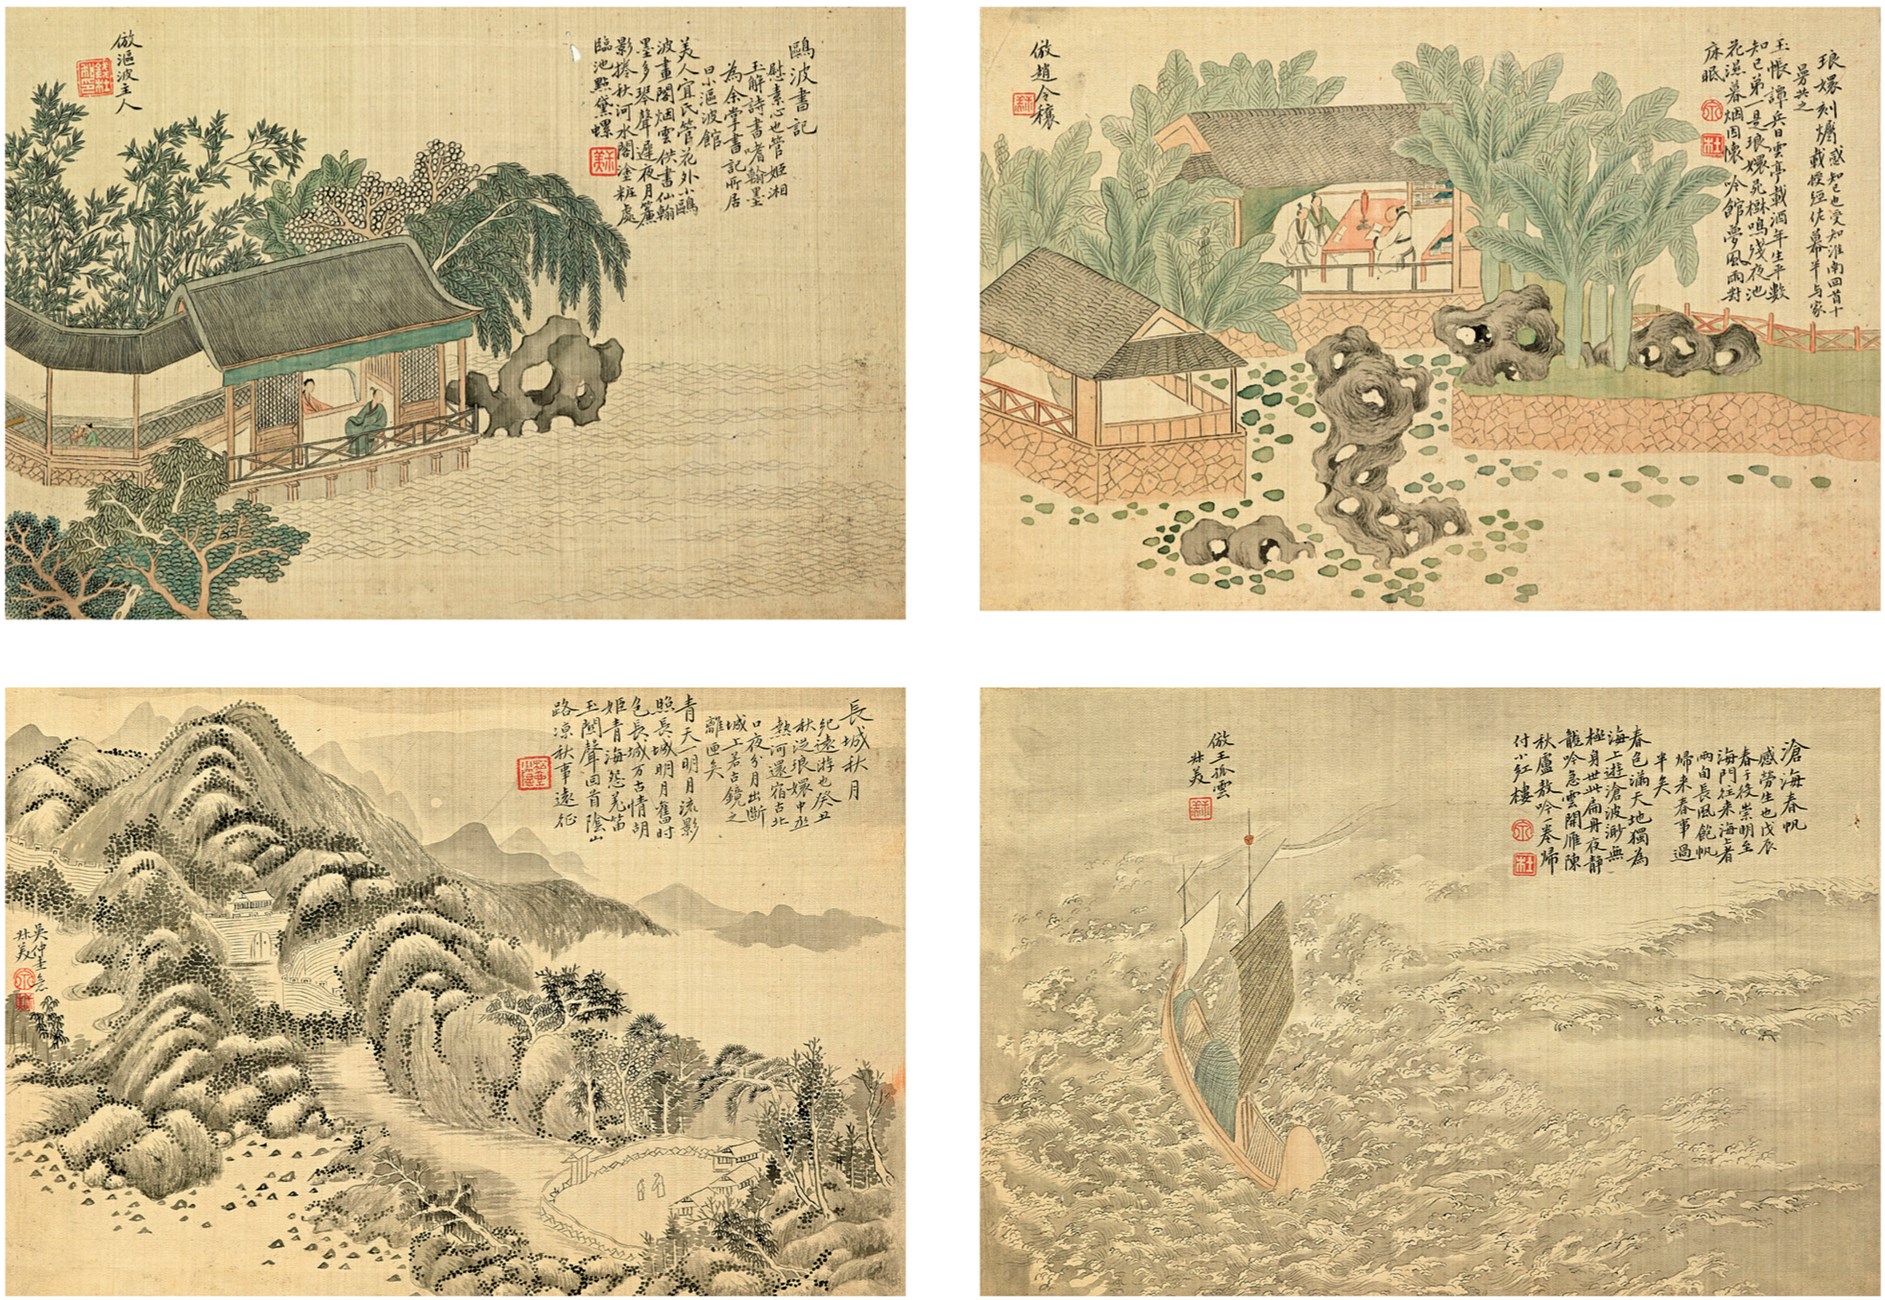 鷗波書記
慰素心也管姬湘
玉解詩書嗜翰墨
為余掌書記所居
曰小漚波館
美人宜氏管花外小鷗
波畫閣烟雲供書仙翰
墨多琴聲遲夜月簾
影捲秋河水閣塗粧處
臨池點黛螺
倣漚波主人
琅嬛刻燭
感知己也受知淮南回首十
載幔短佐幕半与家
昙共之
玉帳譚兵日雲亭載酒年生平數
知己弟一是琅嬛死樹鳴殘夜池
花溼暮烟因懷吟館夢風雨對
床眠
倣趙令穰
長城秋月
紀遠游也癸丑
秋從琅嬛中丞
熱河還宿古北
口夜分月出斷
城上若古鏡之
離匣矣
青天一明月流影
照長城明月舊時
色長城万古情胡
姬青海怨羌笛
玉関聲回首陰山
路凉秋事遠征
吳仲圭意
叔美
滄海春帆
感勞生也戊辰
春于役崇明至
海門往来海上者
兩旬長風飽帆
歸来春事過
半矣
春色滿天地獨為
海上遊滄波渺無
極身世此扁舟夜靜
龍吟急雲開雁陳
秋廬敖吟一卷歸
付小紅樓
倣王孤雲
叔美